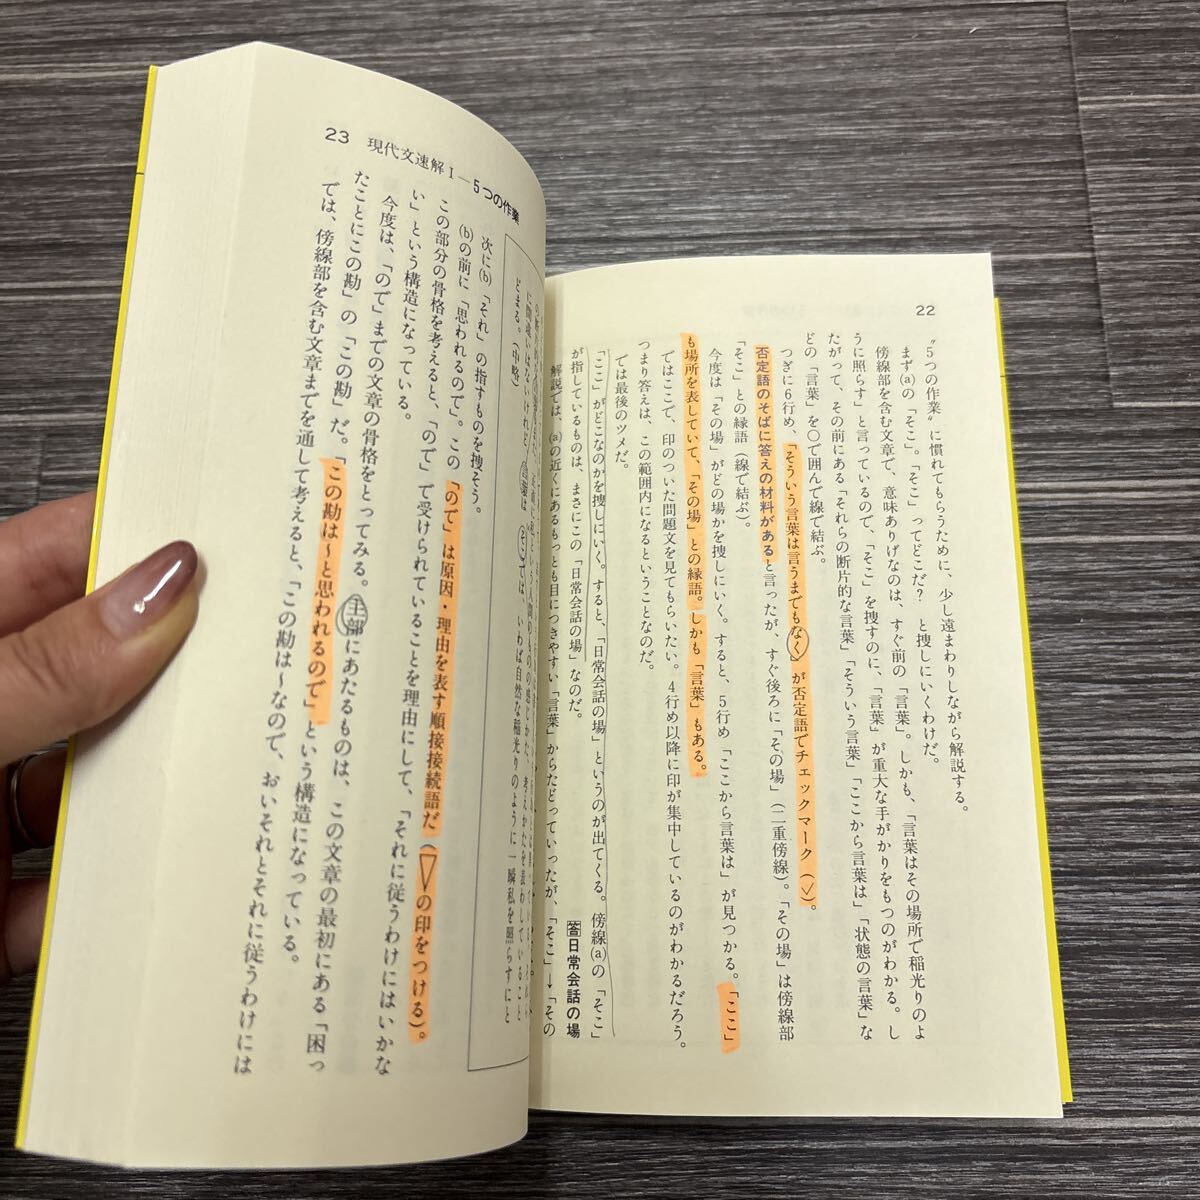 22
“5つの作業”に慣れてもらうために、少し遠まわりしながら解説する。
まず(a)の「そこ」。「そこ」ってどこだ？　と捜しにいくわけだ。
傍線部を含む文章で、意味ありげなのは、すぐ前の「言葉」。しかも、「言葉はその場所で稲光りのよ
うに照らす」と言っているので、「そこ」を捜すのに、「言葉」が重大な手がかりをもつのがわかる。し
たがって、その前にある「それらの断片的な言葉」「そういう言葉」「ここから言葉は」「状態の言葉」な
どの「言葉」を○で囲んで線で結ぶ。
つぎに6行め、「そういう言葉は言うまでもなく」が否定語でチェックマーク（✓）。
否定語のそばに答えの材料があると言ったが、すぐ後ろに「その場」（二重傍線）。「その場」は傍線部
「そこ」との縁語（線で結ぶ）。
今度は「その場」がどの場かを捜しにいく。すると、5行め「ここから言葉は」が見つかる。「ここ」
も場所を表していて、「その場」との縁語。しかも「言葉」もある。
ではここで、印のついた問題文を見てもらいたい。4行め以降に印が集中しているのがわかるだろう。
つまり答えは、この範囲内になるということなのだ。
では最後のツメだ。
「ここ」がどこなのかを捜しにいく。すると、「日常会話の場」というのが出てくる。傍線(a)の「そこ」
が指しているものは、まさにこの「日常会話の場」なのだ。
答 日常会話の場
解説では、(a)の近くにあるもっとも目につきやすい「言葉」からたどっていったが、「そこ」→「その
23　現代文速解Ⅰ―5つの作業
に間違いはないけれど、言葉はそこでは、いわば自然な稲光りのように一瞬私を照らすにと
どまる。（中略）
次に(b)「それ」の指すものを捜そう。
(b)の前に「思われるので」。この「ので」は原因・理由を表す順接接続語だ（▽の印をつける）。
この部分の骨格を考えると、「ので」で受けられていることを理由にして、「それに従うわけにはいかな
い」という構造になっている。
今度は、「ので」までの文章の骨格をとってみる。主部にあたるものは、この文章の最初にある「困っ
たことにこの勘」の「この勘」だ。「この勘は～と思われるので」という構造になっている。
では、傍線部を含む文章までを通して考えると、「この勘は～なので、おいそれとそれに従うわけには